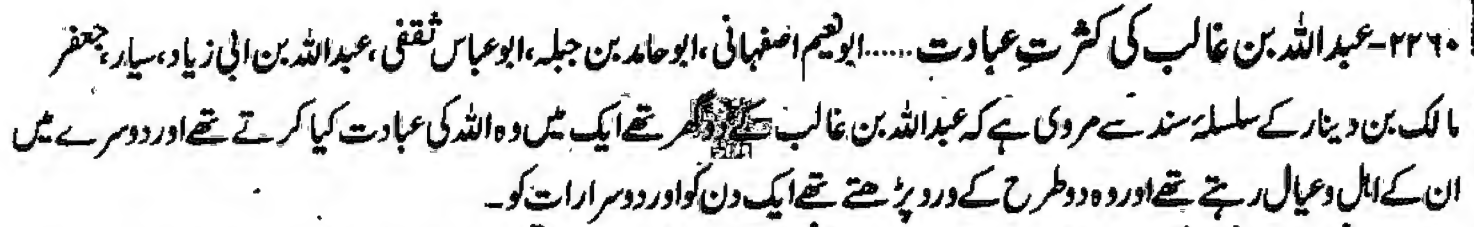 ۲۲۶۰-عبداللہ بن غالب کی کثرتِ عبادت......ابونعیم اصفہانی،ابوحامد بن جبلہ،ابوعباس ثقفی،عبداللہ بن ابی زیاد،سیار،جعفر
مالک بن دینار کے سلسلۂ سند سے مروی ہے کہ عبداللہ بن غالب کے دو گھر تھے ایک میں وہ اللہ کی عبادت کیا کرتے تھے اور دوسرے میں
ان کے اہل و عیال رہتے تھے اور وہ دو طرح کے ورد پڑھتے تھے ایک دن کو اور دوسرا رات کو۔